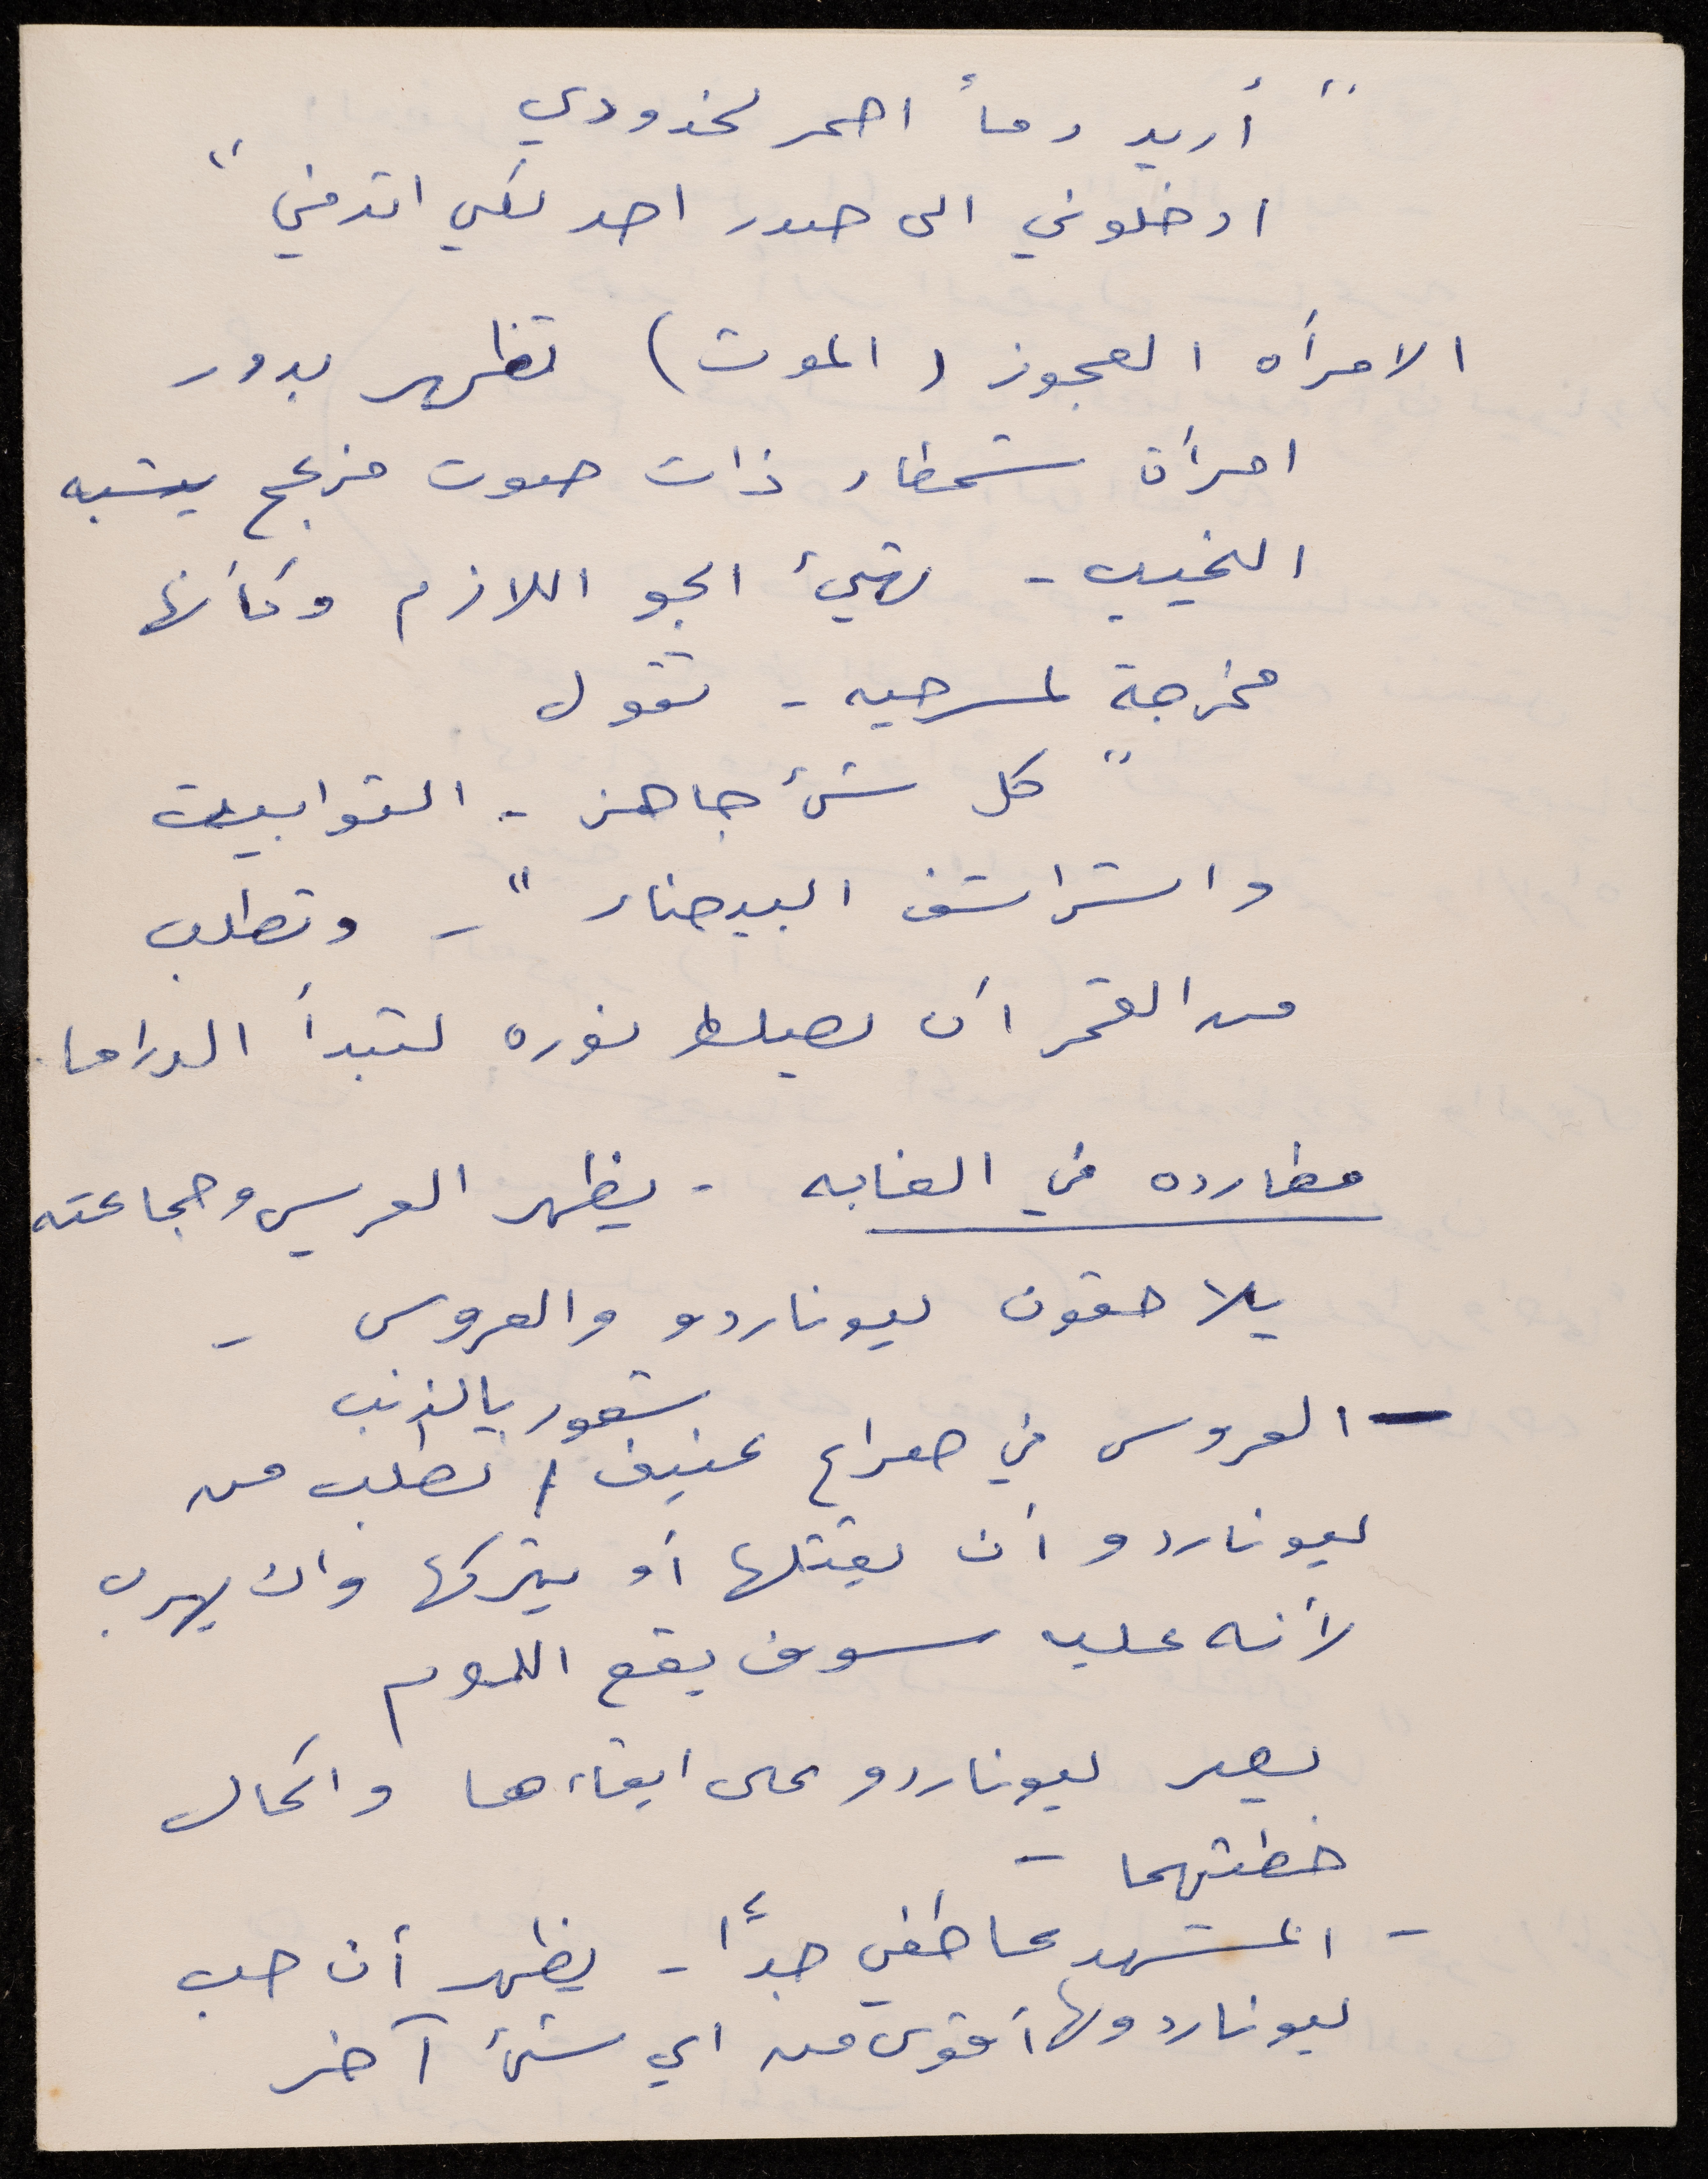 " أريد دماً احمر لخدودي
ادخلوني الى صدر احد لكي اتدفى "
الامرأه العجوز (الموت) تظهر بدور
امرأة شمطاء ذات صوت مزعج يشبه
النحيب - تهيئ الجو اللازم وكأنها
مخرجة لمسرحيه - تقول
" كل شئ جاهز - التوابيت
والشراشف البيضاء " - وتطلب
من القمر أن يسلط نوره لتبدأ الدراما .
مطارده في الغابه - يظهر العريس وجماعته
يلاحقون ليوناردو والعروس -
شعور بالذنب
- العروس في صراع عنيف / تطلب من
ليوناردو أن يقتلها أو يتركها وان يهرب
لأنه عليه سوف يقع اللوم
يصر ليوناردو على ابقاءها واكمال
خطتهما -
- المشهد عاطفي جداً - يظهر أن حب
ليوناردو لها أقوى من اي شئ آخر